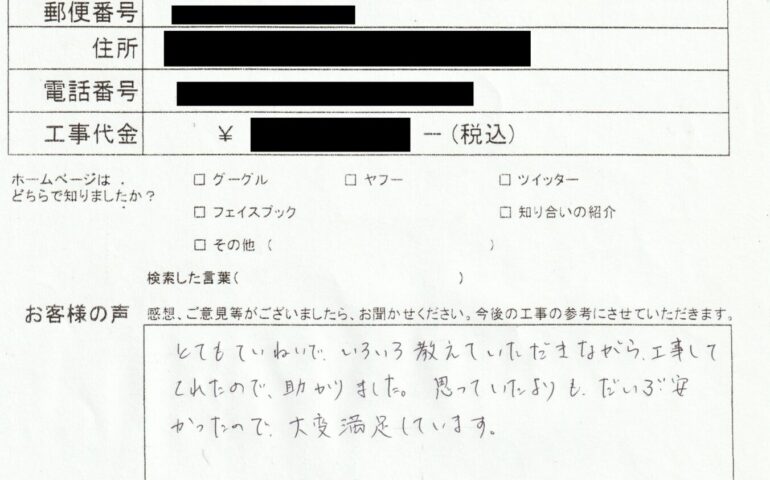 郵便番号
住所
電話番号
工事代金 ¥ ―(税込)
ホームページは
どちらで知りましたか？
□ グーグル □ ヤフー □ ツイッター
□ フェイスブック □ 知り合いの紹介
□ その他（ ）
検索した言葉( )
お客様の声 感想、ご意見等がございましたら、お聞かせください。今後の工事の参考にさせていただきます。
とてもていねいで、いろいろ教えていただきながら、工事して
くれたので、助かりました。思っていたよりも、だいぶ安
かったので、大変満足しています。